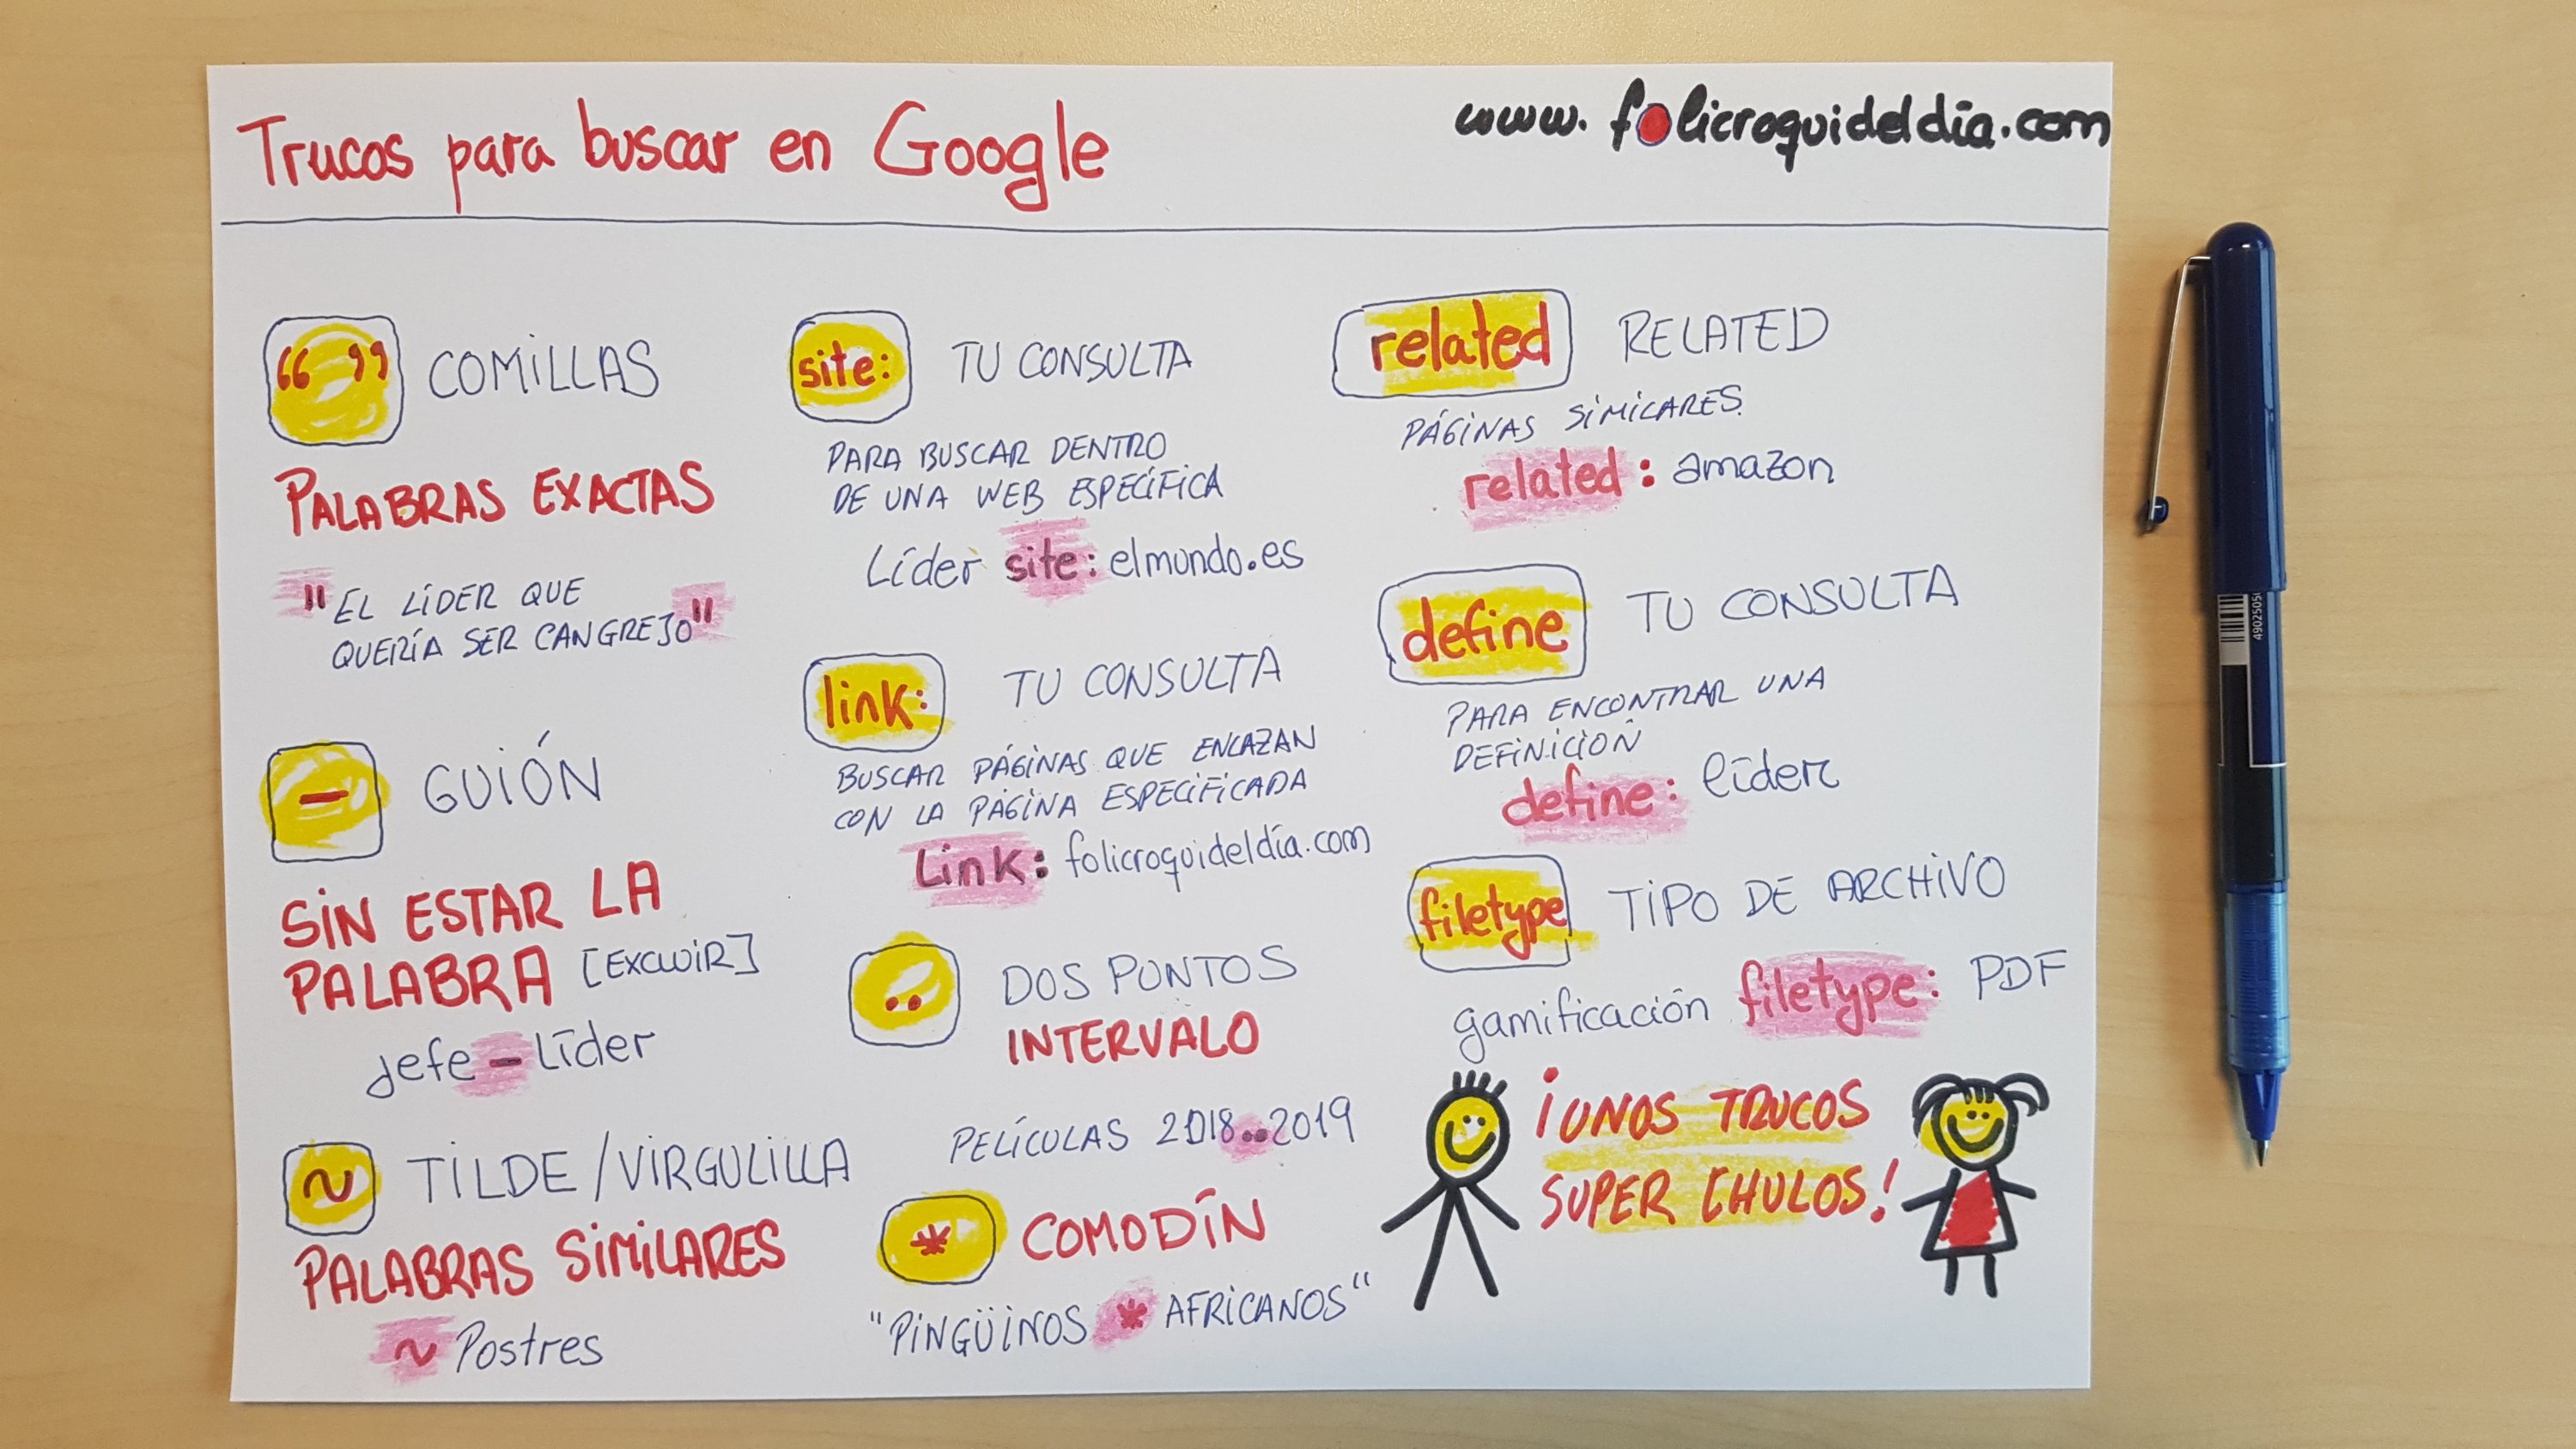 Trucos para buscar en Google
www.folicroquideldía.com
“ ” COMILLAS
PALABRAS EXACTAS
"EL LÍDER QUE
QUERÍA SER CANGREJO"
- GUIÓN
SIN ESTAR LA
PALABRA [EXCLUIR]
jefe - Líder
~ TILDE/VIRGULILLA
PALABRAS SIMILARES
~ Postres
site: TU CONSULTA
PARA BUSCAR DENTRO
DE UNA WEB ESPECÍFICA
Líder site: elmundo.es
link: TU CONSULTA
BUSCAR PÁGINAS QUE ENLAZAN
CON LA PÁGINA ESPECIFICADA
Link: folicroquideldía.com
.. DOS PUNTOS
INTERVALO
PELÍCULAS 2018..2019
* COMODÍN
"PINGÜINOS * AFRICANOS"
related RELATED
PÁGINAS SIMILARES.
related: amazon
define TU CONSULTA
PARA ENCONTRAR UNA
DEFINICIÓN
define: líder
filetype TIPO DE ARCHIVO
gamificación filetype: PDF
¡UNOS TRUCOS
SUPER CHULOS!